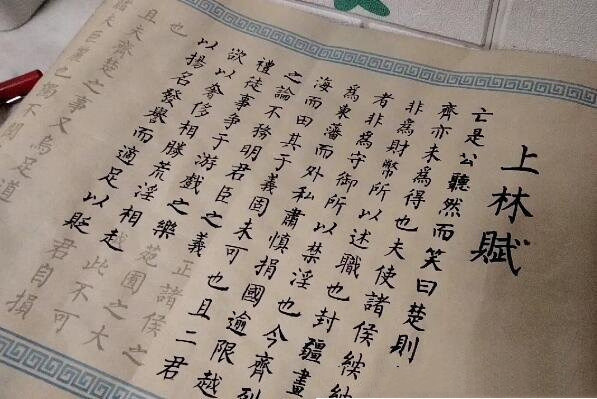 上林賦
亡是公聽然而笑曰楚則
齊亦未為得也夫使諸侯
非為財幣所以述職也封疆畫
者非為守御所以禁淫也今齊列
為東藩而外私肅慎捐國逾限越
海而田其于義固未可也且二君
之論不務明君臣之義正諸侯之
禮徒事爭于游戲之樂苑囿之大
欲以奢侈相勝荒淫相越此不可
以揚名發譽而適足以貶君自損
也
且夫齊楚之事又烏足道
夫巨麗也獨不聞